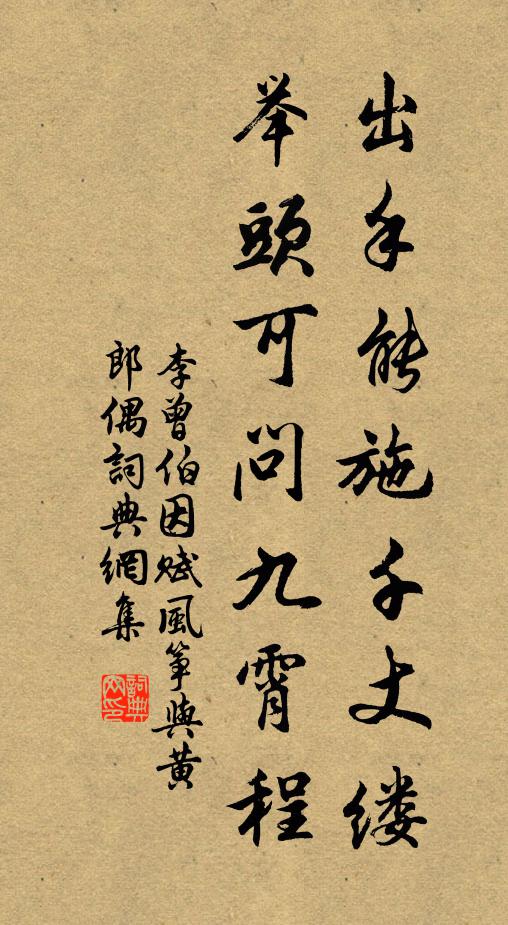 出手能施千丈缕
举頭可問九霄程
李曾伯因赋風筝與黄
郎偶詞典網集
詞典網印